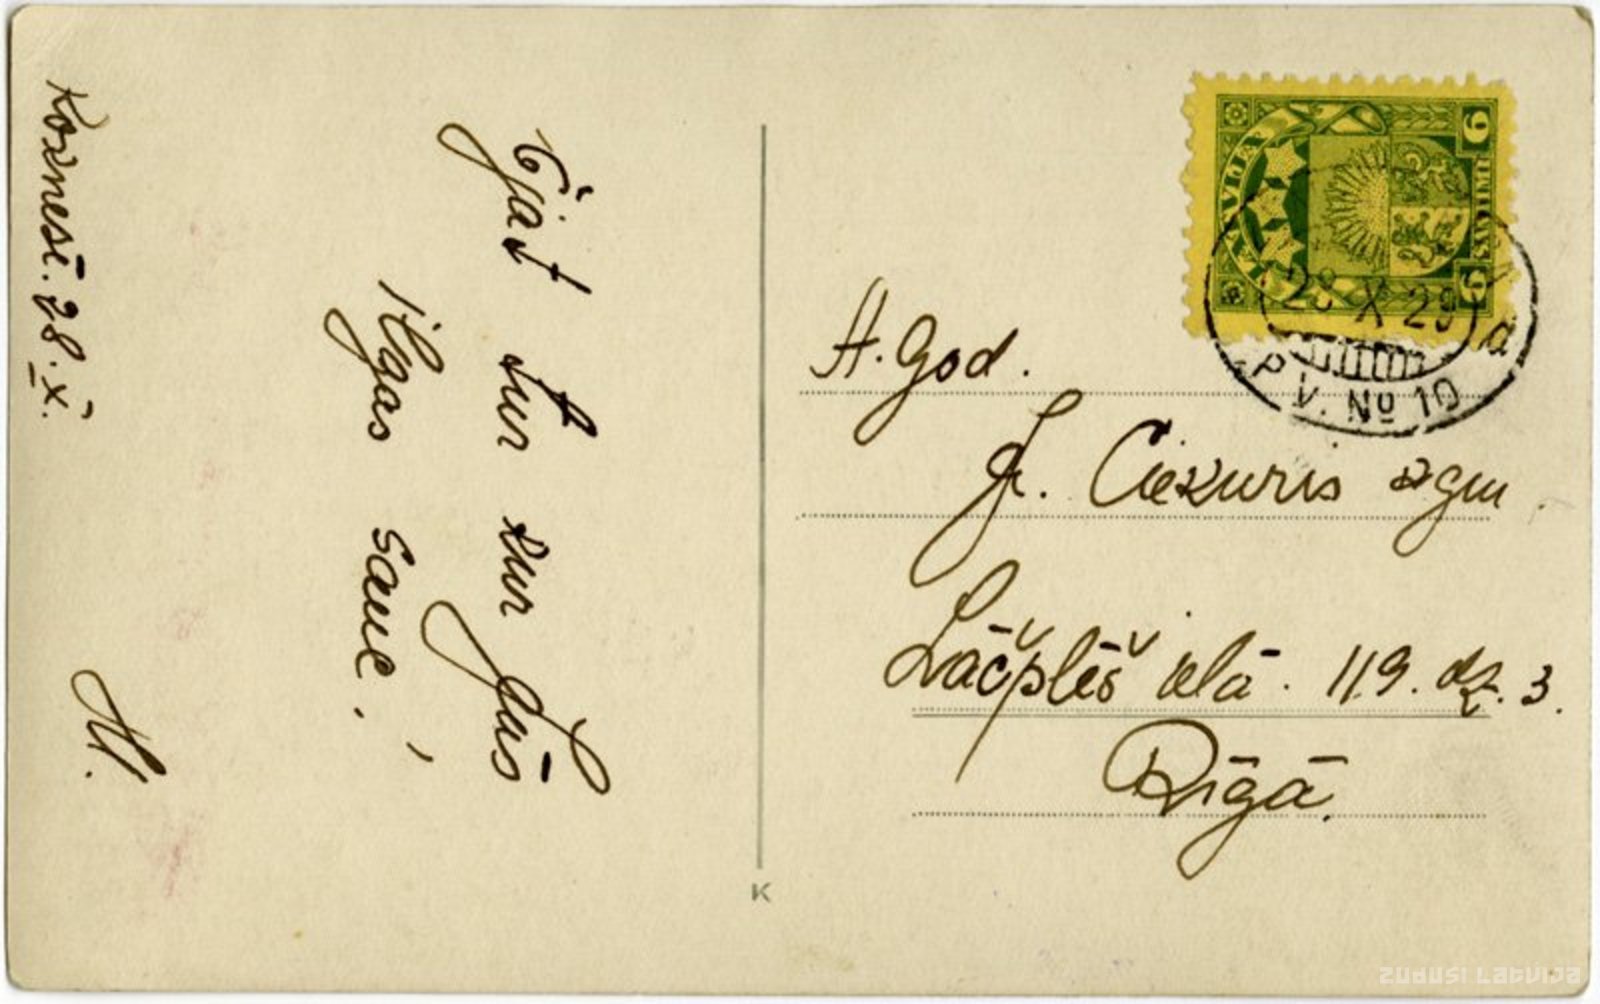 Koknesē. 28. X.
Ejat tur kur Jūs
ilgas sauc.
M.
LATVIJA
6
6
28 X 29
P V. No 10
a
A. God.
J. Ciekuris kgm.
Lāčplēš ielā. 119. dz. 3.
Rīgā.
K
zudusi Latvija